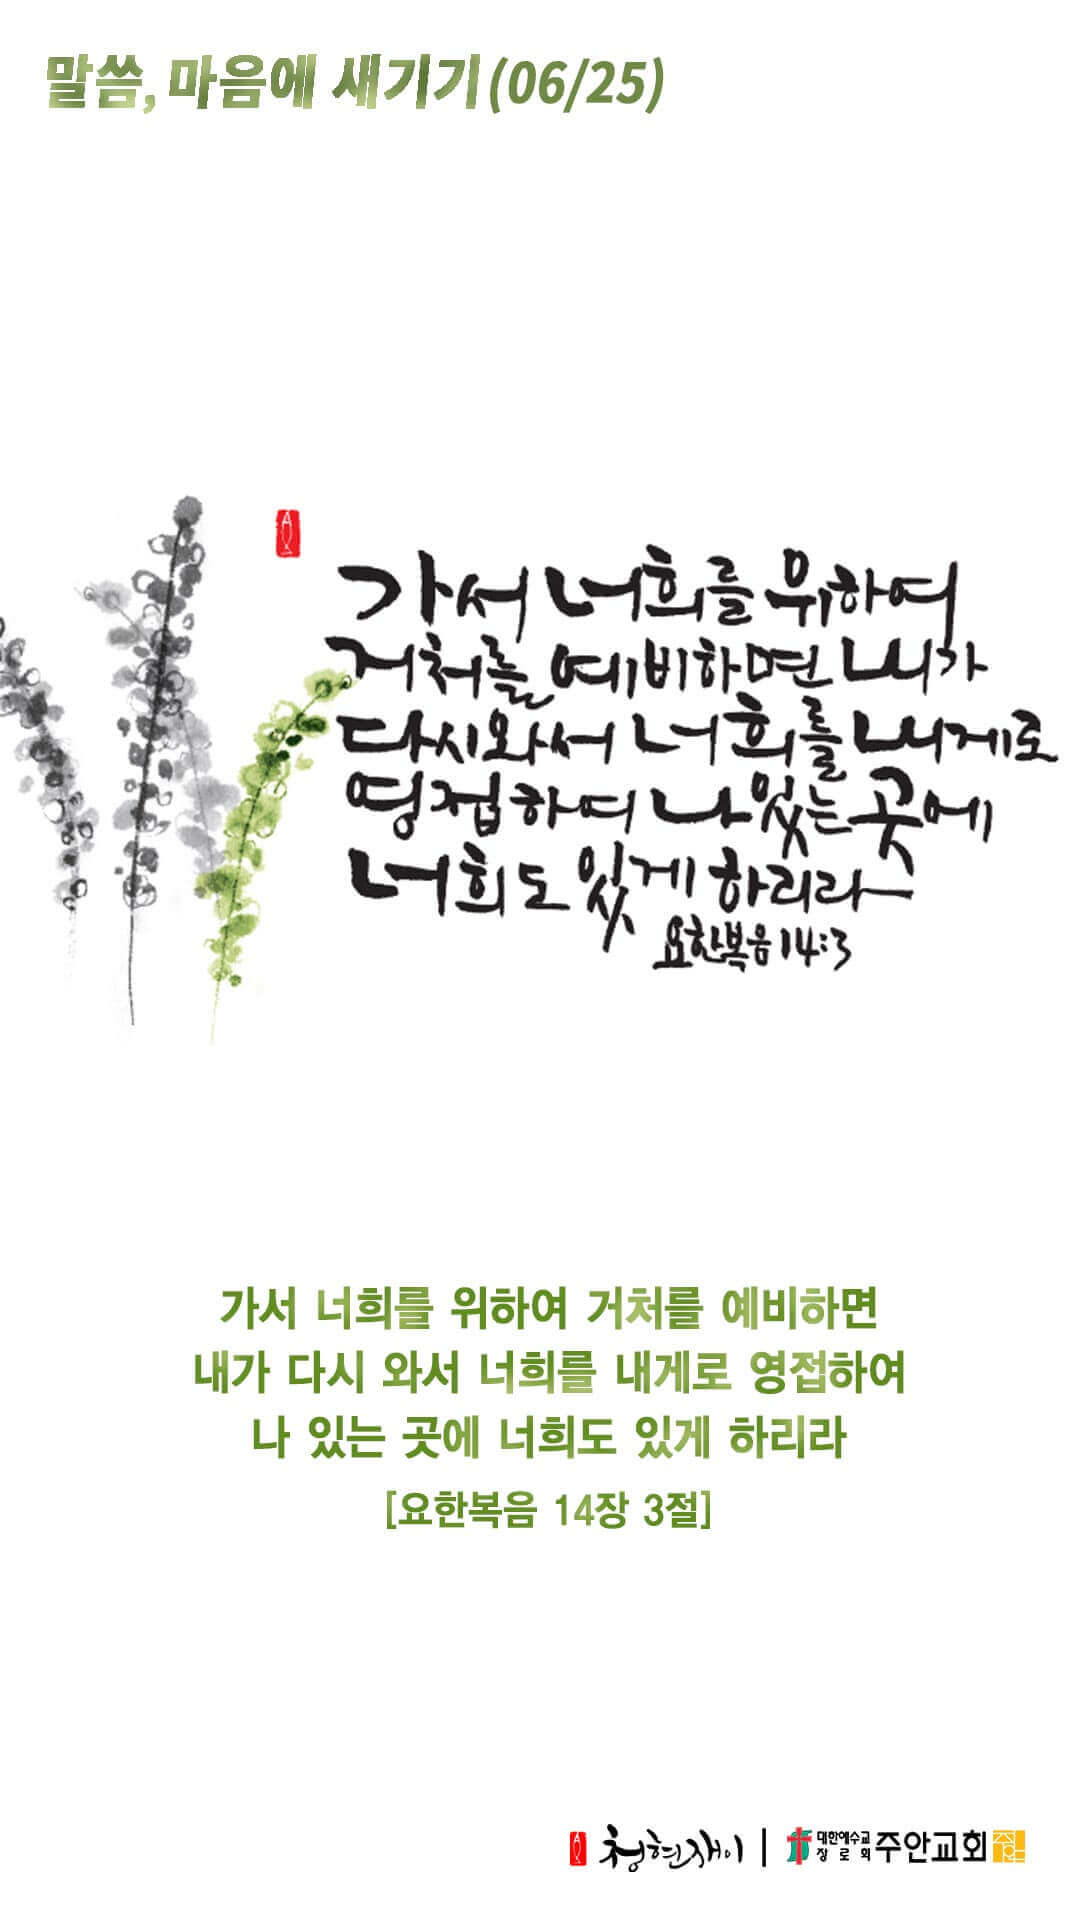 말씀, 마음에 새기기(06/25)
가서 너희를 위하여
거처를 예비하면 내가
다시와서 너희를 내게로
영접하여 나 있는 곳에
너희도 있게 하리라
요한복음 14:3
가서 너희를 위하여 거처를 예비하면
내가 다시 와서 너희를 내게로 영접하여
나 있는 곳에 너희도 있게 하리라
[요한복음 14장 3절]
청현재이 | 대한예수교 장로회 주안교회